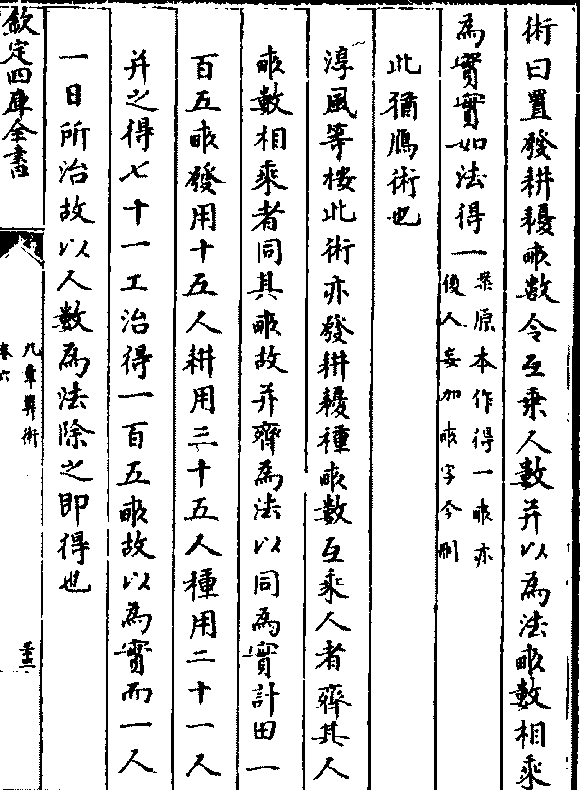 術曰置發耕耰畝數令互乘人數并以為法畝數相乘
為實實如法得一案原本作得一畝亦
後人妄加畝字今刪
此猶鳧術也
淳風等按此術亦發耕耰種畝數互乘人者齊其人
畝數相乘者同其畝故并齊為法以同為實計田一
百五畝發用十五人耕用三十五人種用二十一人
并之得七十一工治得一百五畝故以為實而一人
一日所治故以人數為法除之即得也
欽定四庫全書
九章算術
卷六